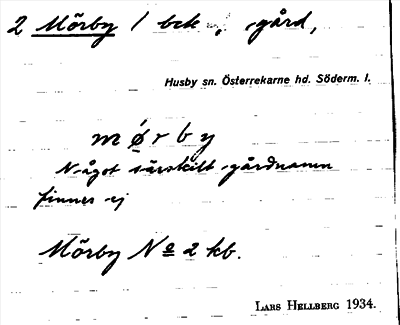 2 Mörby / bck , gård,
Husby sn. Österrekarne hd. Söderm. l.
mǿrby
Något särskilt gårdnamn
finnes ej
Mörby No 2 kb.
Lars Hellberg 1934.